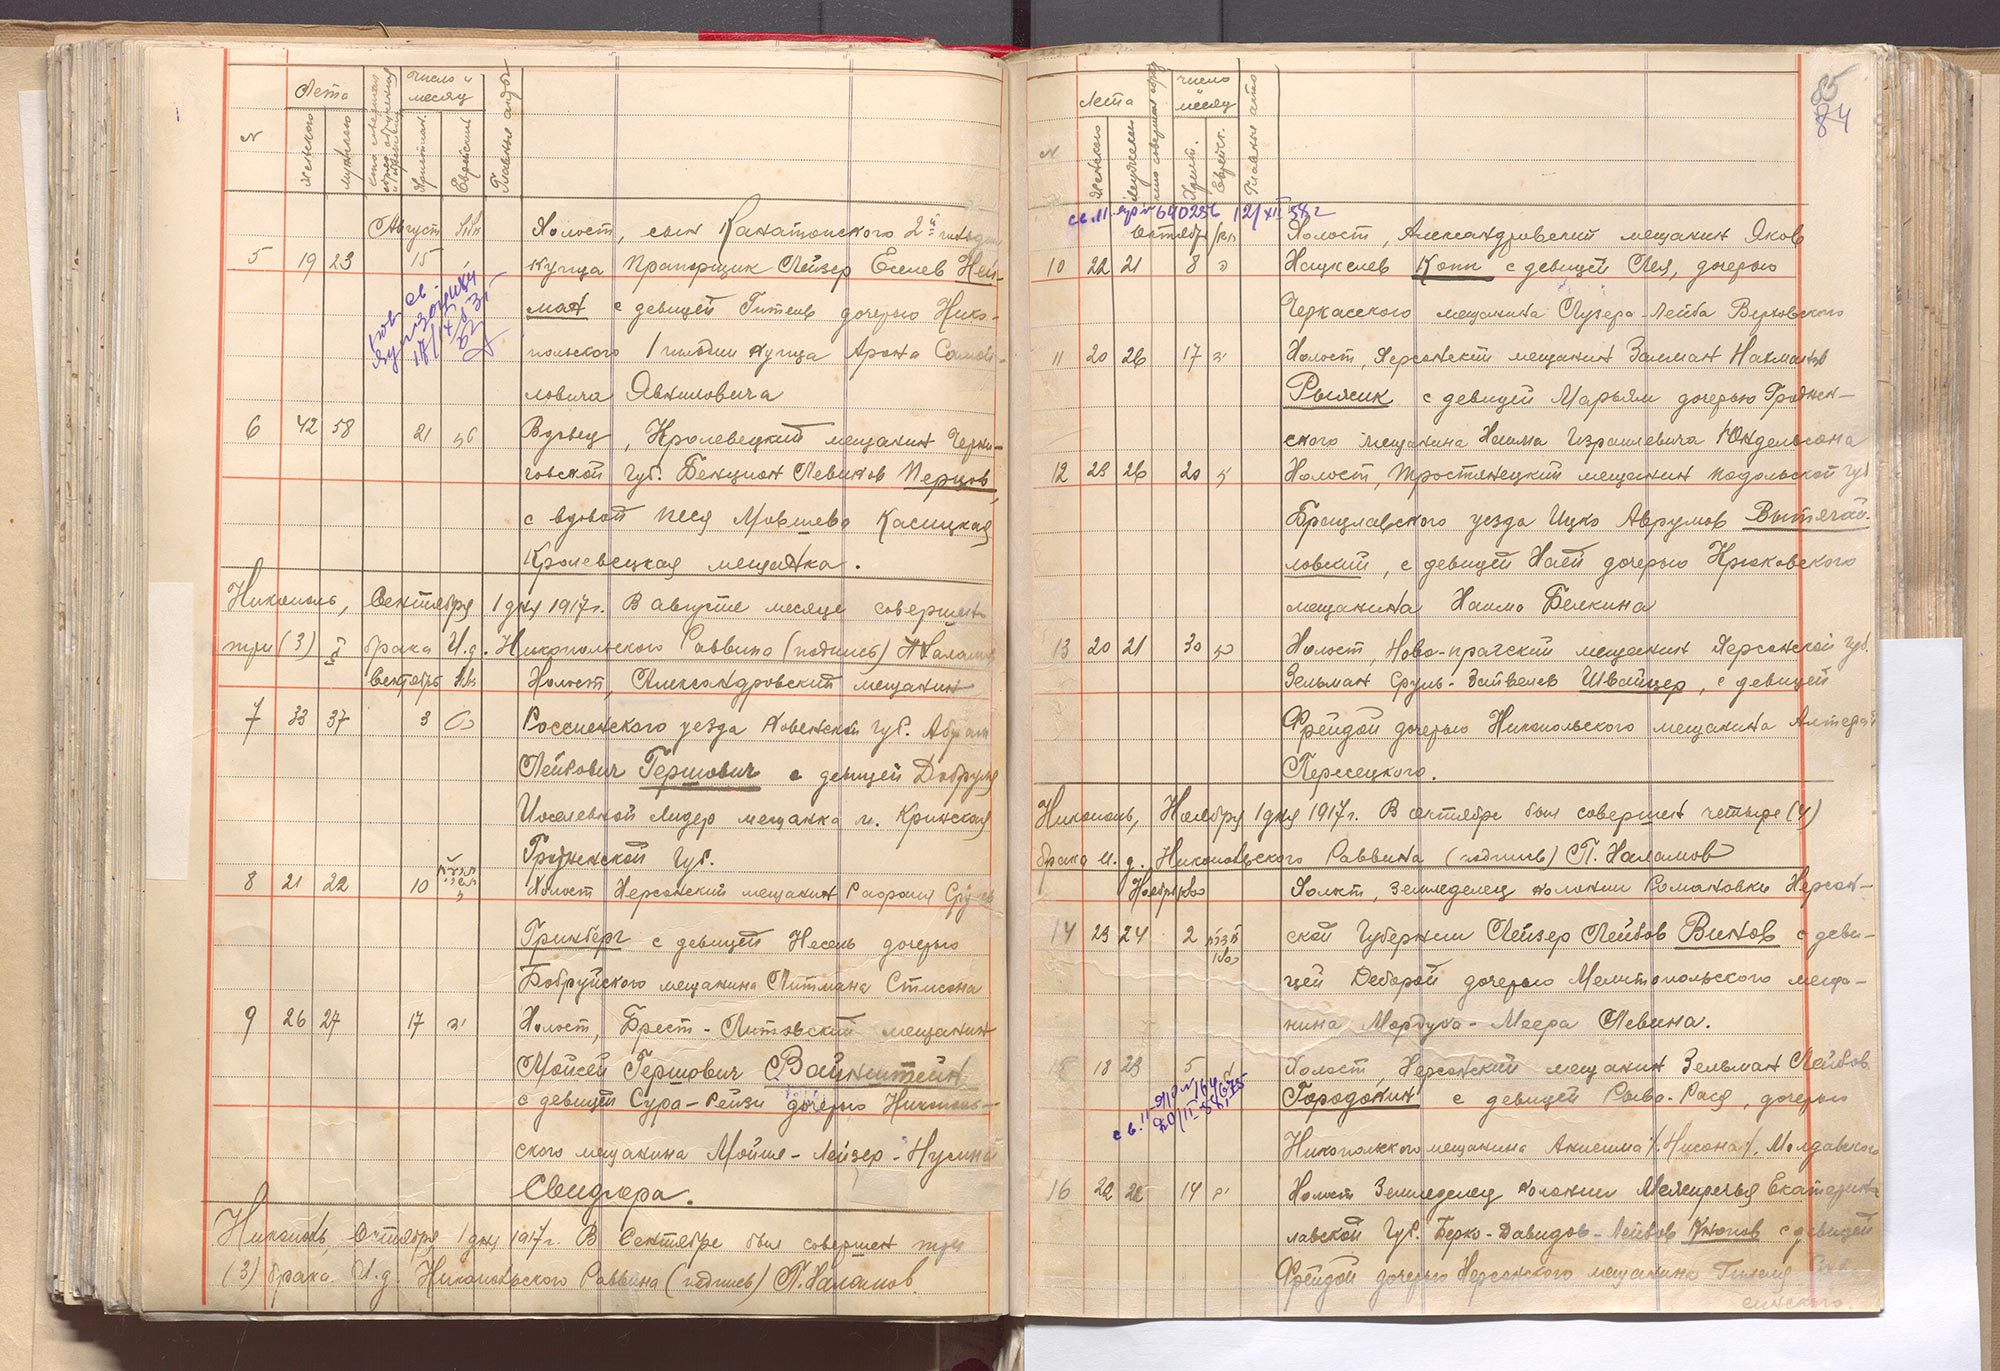 №
Лета
Женского
Мужского
число и
месяц
Еврейский
Главные акты
Август
5 19 23 15
Холост, сын Канатопского 2й гильдии
купца Прапорщик Лейзер Еселев Ней-
ман с девицей Гитель дочерью Нико-
польского 1 гильдии купца Арона Самой-
ловича Явниловича
6 42 58 21
Вдовец, Кролевецкий мещанин Черни-
говской губ. Бенцион Левиков Перцов,
с вдовой Песя Мовшева Касицкая
Кролевецкая мещанка.
Никополь, Сентября 1 дня 1917 г. В августе месяце совершено
три (3) брака И.д. Никопольского Раввина (подпись)
Сентябрь
Холост, Александровский мещанин
7 33 37 3
Россиенского уезда Ковенской губ. Абрам
Лейбович Гершович с девицей Добруля
Иоселевной Лидер мещанка м. Кринская
Гродненской Губ.
8 21 22 10
Холост Херсонский мещанин Рафаил Сруль
Гринберг с девицей Несель дочерью
Бобруйского мещанина Литмана Стисона
9 26 27 17
Холост, Брест-Литовский мещанин
Мойсей Гершович Вайнштейн
с девицей Сура-Рейзи дочерью Никополь-
ского мещанина Мойше-Лейзер-Нусина
Свидлера.
Никополь, Октября 1 дня 1917 г. В Сентябре был совершен три
(3) брака. И.д. Никопольского Раввина (подпись) П. Халамов.
85
84
№
Лета
Женского
число
и
месяц
Христ.
Еврейск.
Главные акты
св. II-яр № 640256 12/XII 58 г
Октября
Холост, Александровский мещанин Яков
10 22 21 8
Нацкелев Копп с девицей Лея, дочерью
Черкасского мещанина Лузера-Лейба Верховского
11 20 26 17
Холост, Херсонский мещанин Залман Нахманов
Рыжик с девицей Марьям дочерью Гроднен-
ского мещанина Хаима Израилевича Юндельсона
12 23 26 20
Холост, Тростянецкий мещанин Подольской губ
Брацлавского уезда Ицко Аврумов Вытягай-
ловский, с девицей Хаей дочерью Крюковского
мещанина Хаима Белкина
13 20 21 30
Холост, Ново-прагский мещанин Херсонской губ.
Зельман Сруль-Зайвелев Швайцер, с девицей
Фрейдой дочерью Никопольского мещанина
Пересецкого.
Никополь, Ноября 1 дня 1917 г. В октябре был совершен четыре (4)
брака и. д. Никопольского Раввина (подпись) П. Халамов
Ноябрь
Холост, Земледелец колонии Романовки Херсон-
14 23 24 2
ской Губернии Лейзер Лейбов Винов с деви-
цей Деборой дочерью Мелитопольского меща-
нина Мордуха-Меера Левина.
15 18 23 5
Холост, Херсонский мещанин Зельман Лейбов
Городокин с девицей Рыва-Рася, дочерью
Никопольского мещанина Анисима /Нисона/ Молдавского
16 22 22 14
Холост Земледелец колонии Межиречья Екатерино-
славской Губ. Берко-Давидов-Лейбов Кнопов с девицей
Фрейдой дочерью Херсонского мещанина Гилеля
синского